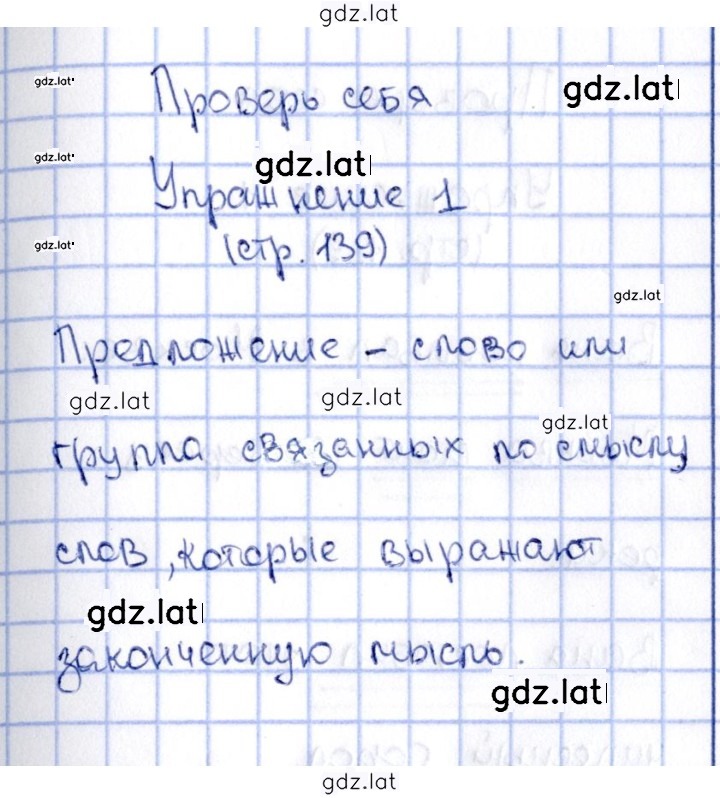 gdz.lat
gdz.lat
Проверь себя
gdz.lat
gdz.lat
gdz.lat
Упражнение 1
gdz.lat
(стр. 139)
gdz.lat
Предложение – слово или
gdz.lat
gdz.lat
gdz.lat
группа связанных по смыслу
слов, которые выражают
gdz.lat
законченную мысль.
gdz.lat
gdz.lat